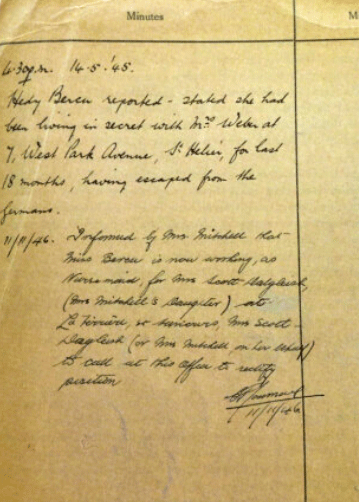 Minutes
M
4.30p.m. 14.5.'45.
Hedy Bercu reported - stated she had
been living in secret with Mrs Weber at
7, West Park Avenue, St Helier, for last
18 months, having escaped from the
Germans.
11/11/46. Informed by Mrs Mitchell that
Miss Bercu is now working, as
Nursemaid, for Mrs Scott Dalgleish,
(Mrs Mitchell's Daughter) at
La St Mrs Scott-
Dalgleish (or Mrs Mitchell on her behalf)
to call at this office to rectify
position
11/11/46